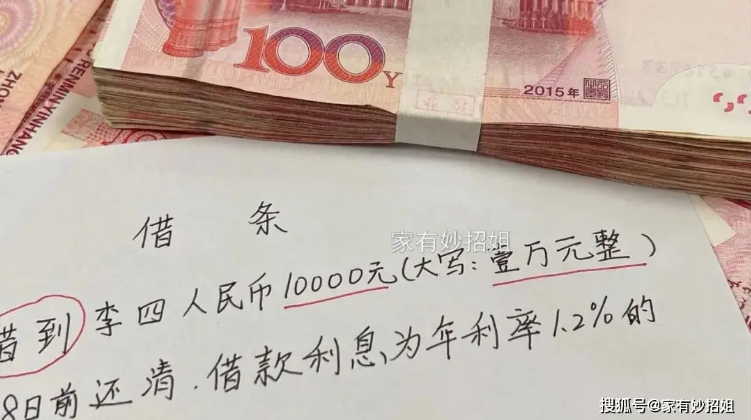 100
Y
2015年
ZHON
RENMINYINHANG
借条
家有妙招姐
借到李四人民币10000元(大写:壹万元整)
8日前还清.借款利息为年利率1.2%的
搜狐号@家有妙招姐